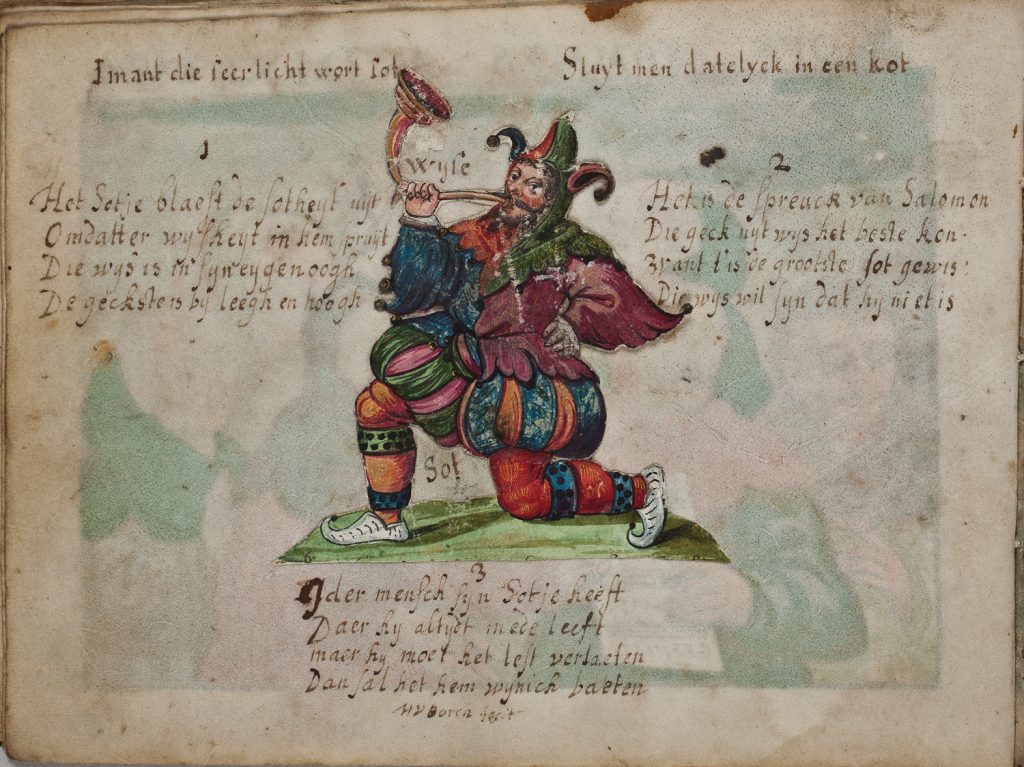 Imant die seer licht wort sot
Sluyt men datelyck in een kot
1
Het Sotje blaest de sotheyt uyt
Omdatter wysheyt in hem spruyt
Die wys is in syn eygen oogh
De geckste is by leegh en hoogh
wyse
2
Het is de spreuck van Salomon
Die geck uyt wys het beste kon
want t is de grootste sot gewis
Die wys wil syn dat hy niet is
Sot
3
Ider mensch syn Sotje heeft
Daer hy altydt mede leeft
maer hy moet het lest verlaeten
Dan sal het hem wynich baeten
fecit